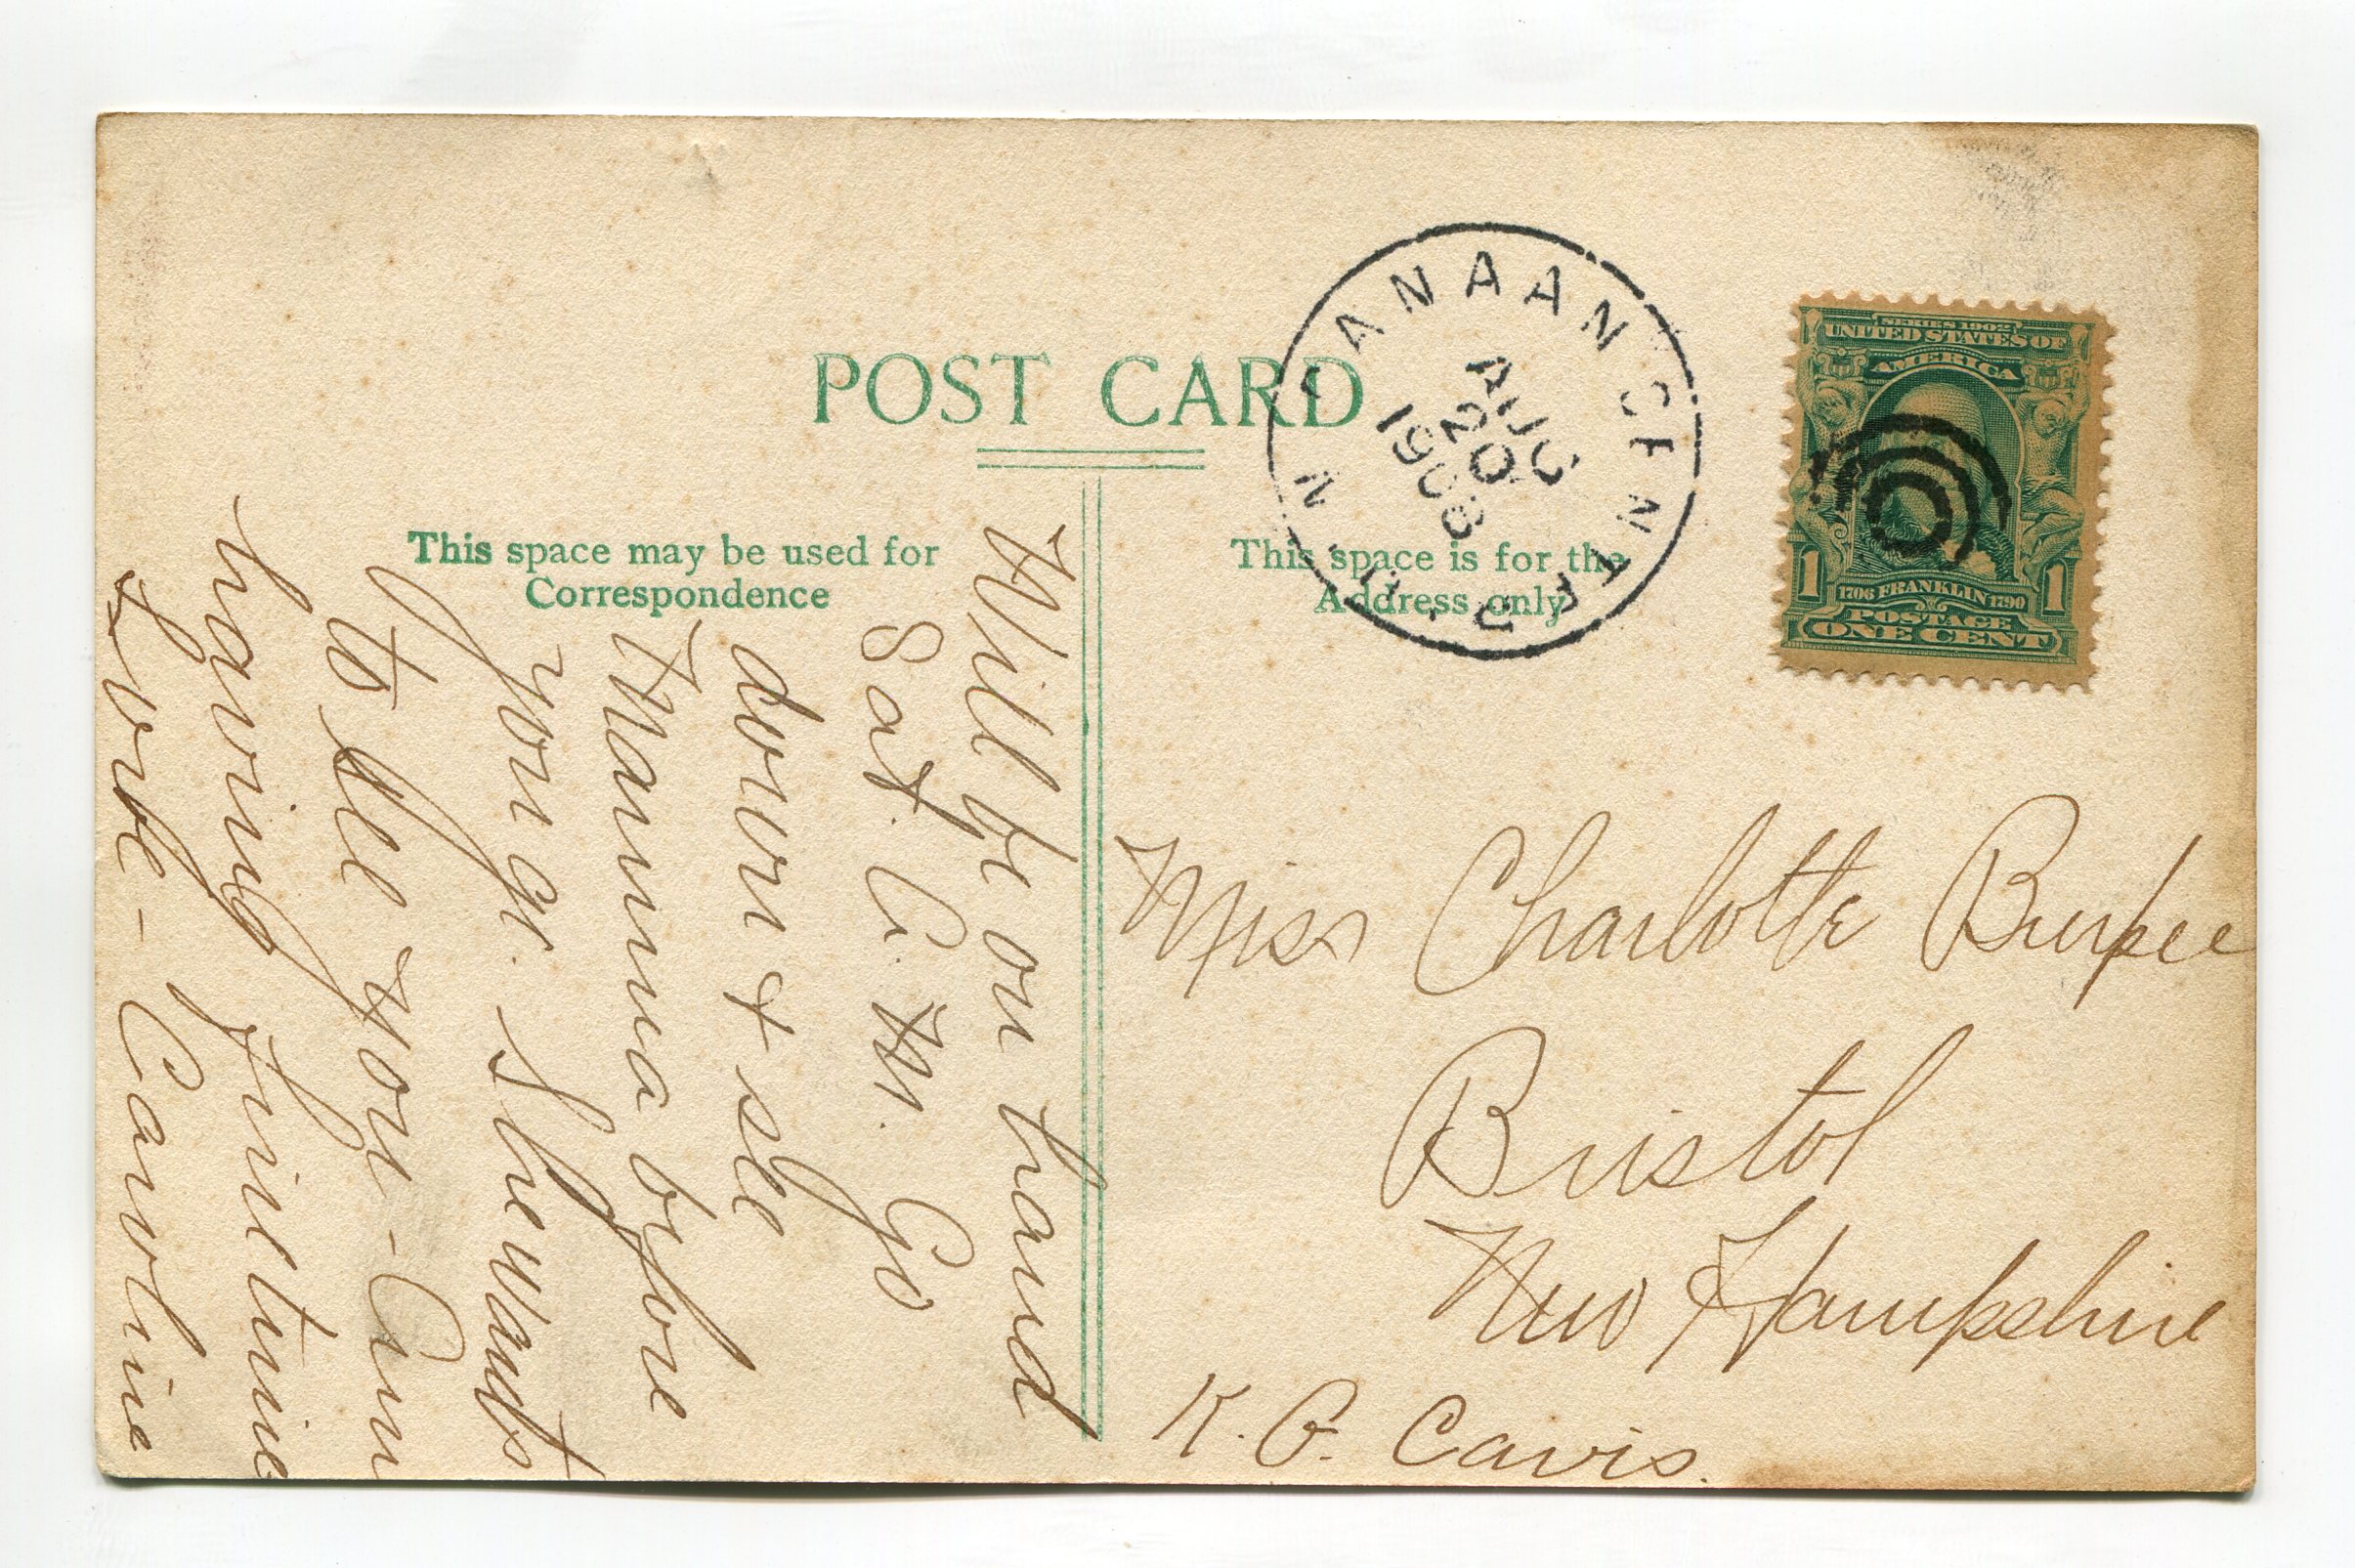 POST CARD
CANAAN CENTER N. H.
AUG
20
1908
SERIES 1902
UNITED STATES OF
AMERICA
1 1706 FRANKLIN 1790 1
POSTAGE
ONE CENT
This space may be used for
Correspondence
This space is for the
Address only
Will be on hand
Sat. A. M. Go
down & see
Mamma before
you go. She wants
to see you - Am
having fine time
Love - Caroline
Miss Charlotte Burpee
Bristol
New Hampshire
K. G. Cavis.